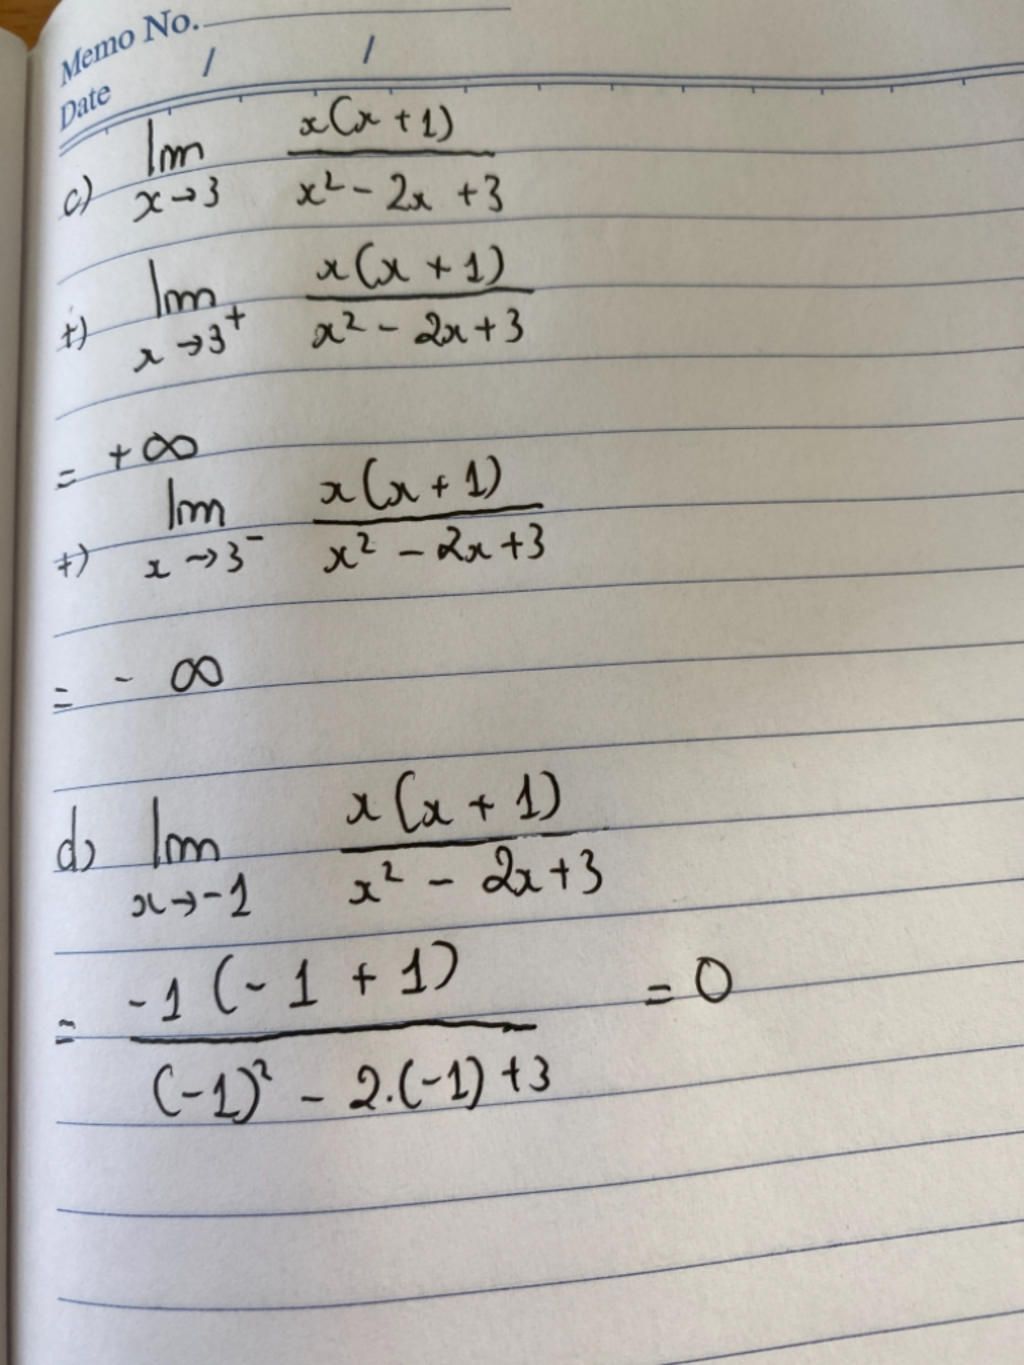 Memo No.
Date / /
c) lim x→3 x(x+1) / x² - 2x + 3
+) lim x→3⁺ x(x+1) / x² - 2x + 3
= +∞
+) lim x→3⁻ x(x+1) / x² - 2x + 3
= -∞
d) lim x→-1 x(x+1) / x² - 2x + 3
= -1(-1+1) / (-1)² - 2.(-1) + 3 = 0